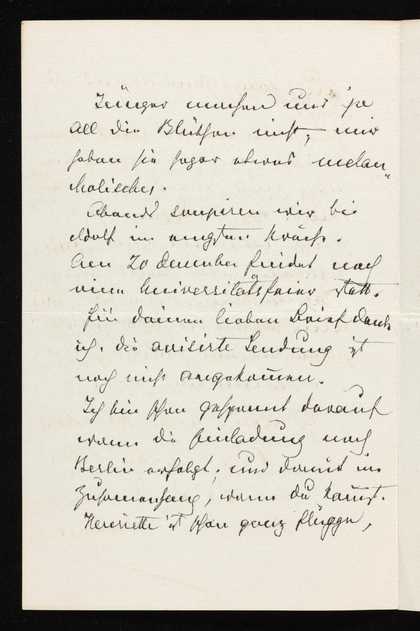 Jünger machen uns ja
all die Blüthen nicht, mir
haben sie sogar etwas melan=
kolisches.
Abends soupiren wir bei
Adolf im engsten Kreise.
Am 20 December findet noch
eine Universitätsfeier statt.
Für deinen lieben Brief danke
ich, die avisirte Sendung ist
noch nicht angekommen.
Ich bin schon gespannt darauf
wann die Einladung nach
Berlin erfolgt, und damit im
Zusammenhang, wann du kommst.
Henriette ist schon ganz flügge,